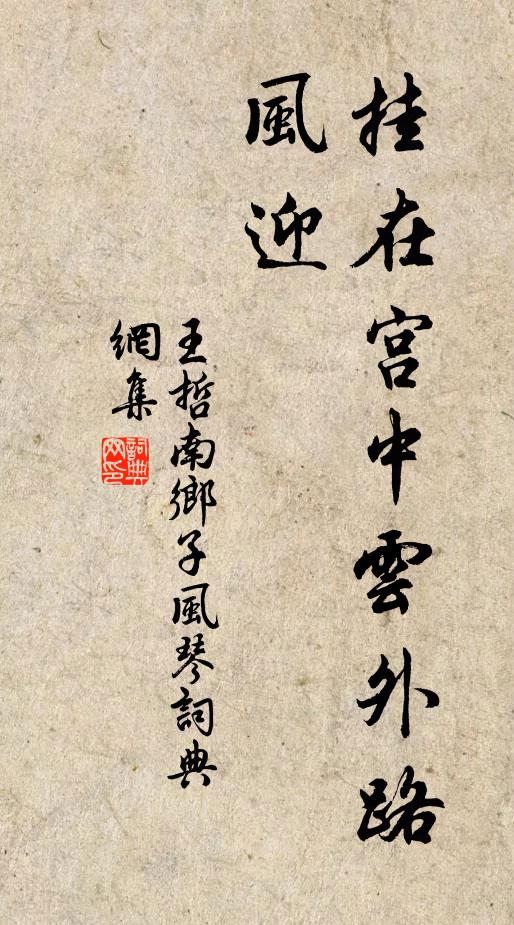 挂在宫中雲外路
風迎
王哲南鄉子風琴詞典
網集
詞典
网印